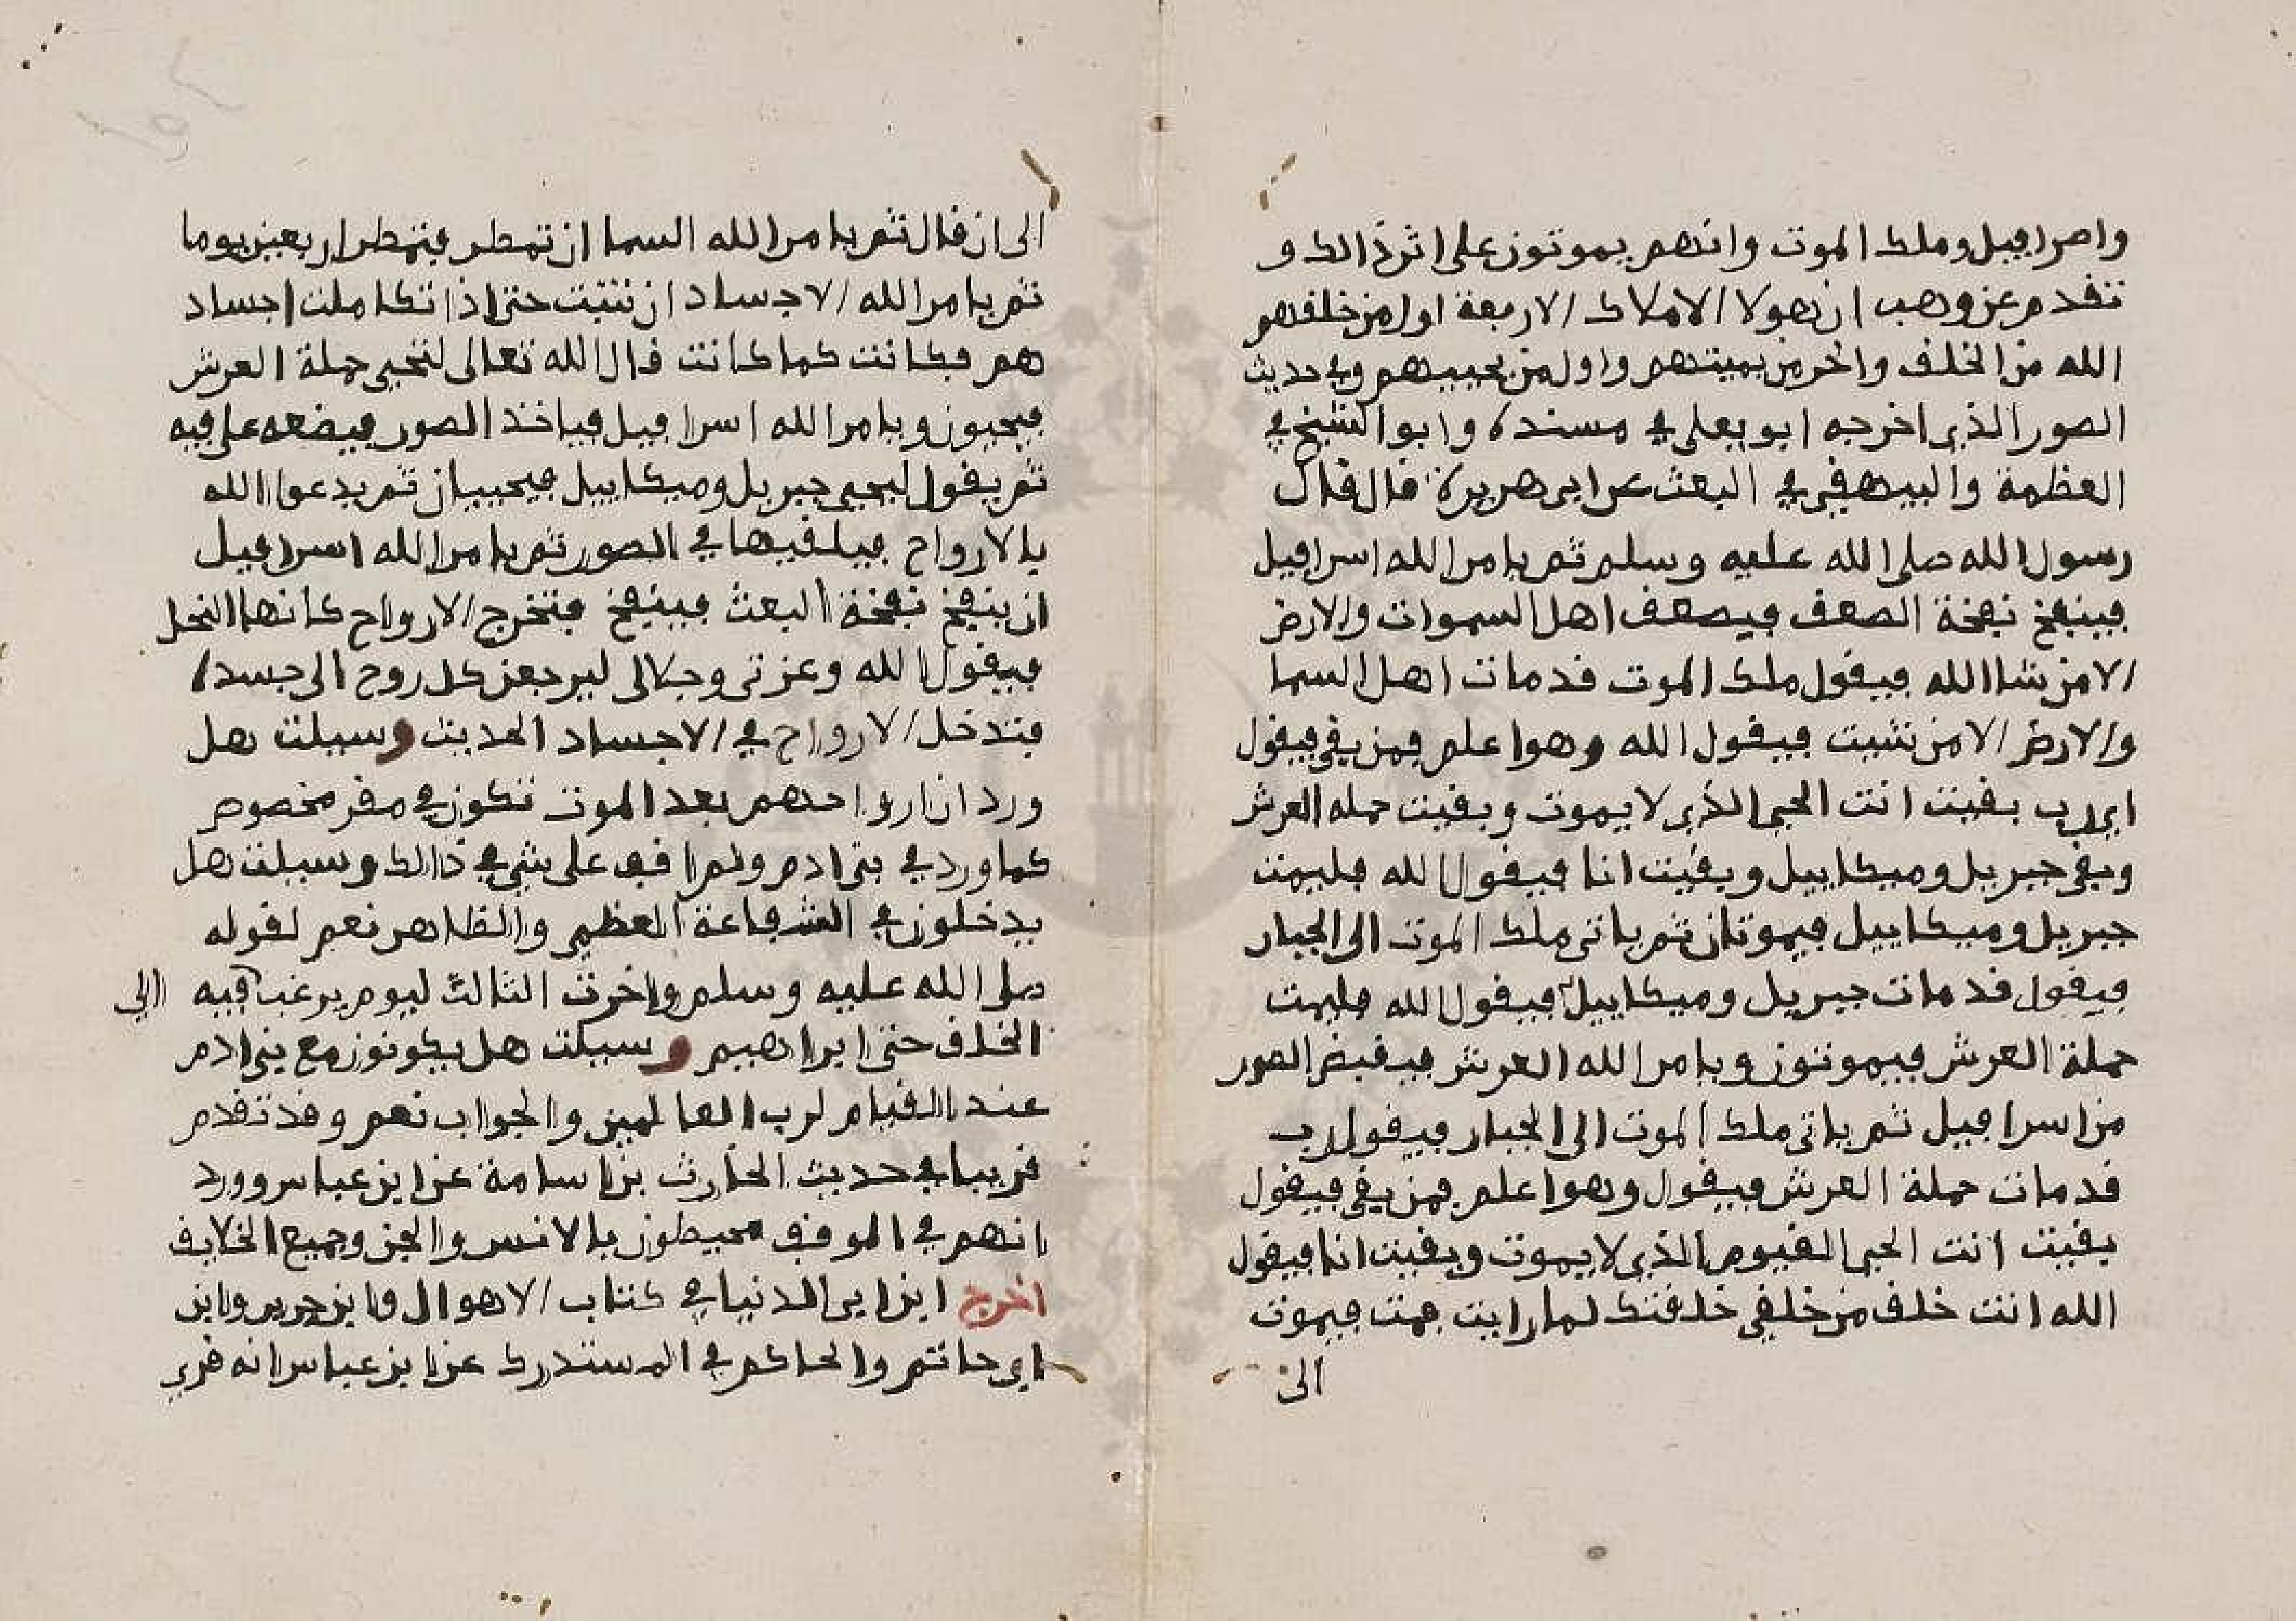 واصرافيل وملك الموت وانهم يموتون على اثر ذالك و
تقدم عن وهب ان هولا الاملاك الاربعة اول من خلفهم
الله من الخلق واخر من يميتهم واول من يحييهم وفي حديث
الصور الذي اخرجه ابو يعلى في مسنده وابو الشيخ في
العظمة والبيهقي في البعث عن ابي هريرة قال قال
رسول الله صلى الله عليه وسلم ثم يامر الله اسرافيل
فينفخ نفخة الصعق فيصعق اهل السموات والارض
الا من شا الله فيقول ملك الموت قد مات اهل السما
والارض الا من شيت فيقول الله وهو اعلم فمن بقي فيقول
اي رب بقيت انت الحي الذي لا يموت وبقيت حمله العرش
وبقي جبريل وميكاييل وبقيت انا فيقول الله فليمت
جبريل وميكاييل فيموتان ثم ياتي ملك الموت الى الجبار
فيقول قد مات جبريل وميكاييل فيقول الله فليمت
حملة العرش فيموتون ويامر الله العرش فيقبض الصور
من اسرافيل ثم ياتي ملك الموت الى الجبار فيقول رب
قد مات حملة العرش فيقول وهو اعلم فمن بقي فيقول
بقيت انت الحي القيوم الذي لا يموت وبقيت انا فيقول
الله انت خلق من خلقي خلقتك لما رايت فمت فيموت
الى ان قال ثم يامر الله السما ان تمطر فتمطر اربعين يوما
ثم يامر الله الاجساد ان تنبت حتى اذا تكاملت اجساد
هم فكانت كما كانت قال الله تعالى لتحيى حملة العرش
فيحيون ويامر الله اسرافيل فياخذ الصور فيضعه على فيه
ثم يقول ليحيى جبريل وميكاييل فيحييان ثم يدعوا الله
بالارواح فيلقيها في الصور ثم يامر الله اسرافيل
ان ينفخ نفخة البعث فينفخ فتخرج الارواح كانها النحل
فيقول الله وعزتي وجلالي ليرجعن كل روح الى جسده
فتدخل الارواح في الاجساد الحديث وسيلت هل
ورد ان ارواحهم بعد الموت تكون في مقر مخصوص
كما ورد في بني ادم ولم اقف على شي في ذالك وسيلت هل
يدخلون في الشفاعة العظمى والظاهر نعم لقوله
صلى الله عليه وسلم واخرت الثالث ليوم يرغب فيه الي
الخلق حتى ابراهيم وسيلت هل يكونون مع بني ادم
عند القيام لرب العالمين والجواب نعم وقد تقدم
قريبا في حديث الحارث بن اسامة عن ابن عباس وورد
انهم في الموقف محيطون بالانس والجن وجميع الخلايق
اخرج ابن ابي الدنيا في كتاب الاهوال وابن جرير وابن
ابي حاتم والحاكم في المستدرك عن ابن عباس انه قرى